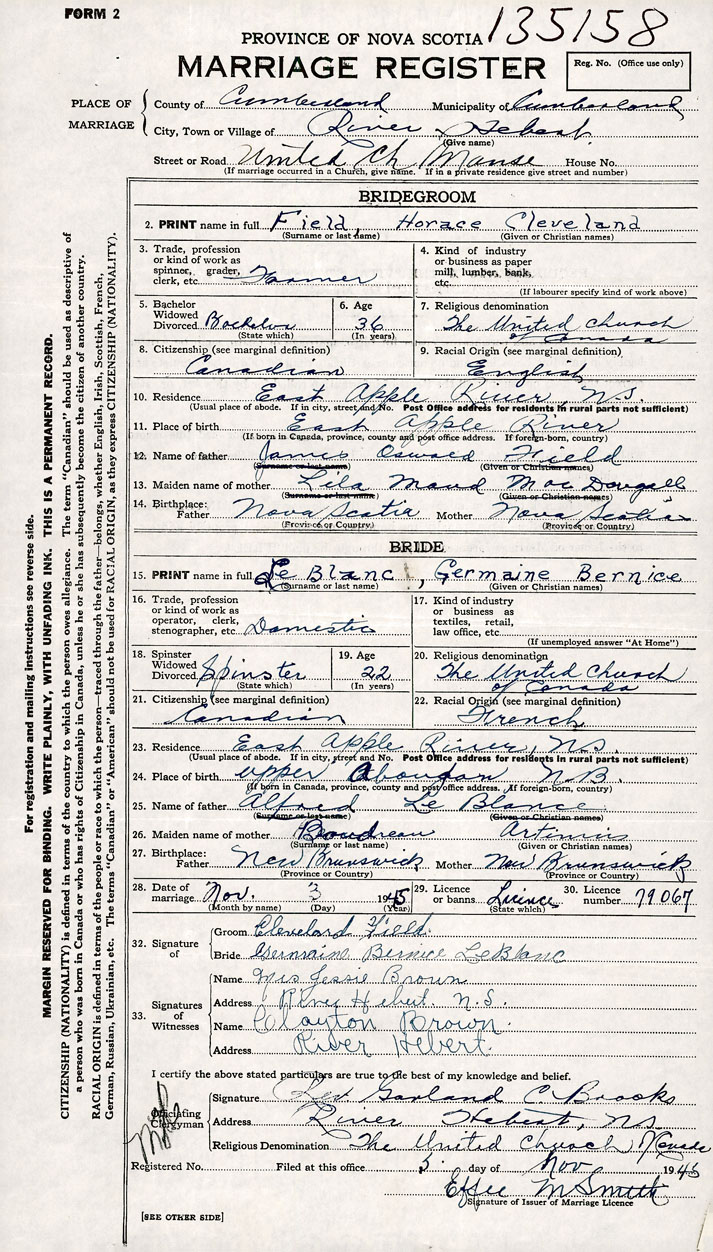 FORM 2
135158
PROVINCE OF NOVA SCOTIA
MARRIAGE REGISTER
Reg. No. (Office use only)
PLACE OF MARRIAGE
County of Cumberland Municipality of Cumberland
City, Town or Village of River Hebert
(Give name)
Street or Road United Ch Manse House No.
(If marriage occurred in a Church, give name. If in a private residence give street and number)
BRIDEGROOM
2. PRINT name in full Field, Horace Cleveland
(Surname or last name) (Given or Christian names)
3. Trade, profession or kind of work as spinner, grader, clerk, etc. Farmer
4. Kind of industry or business as paper mill, lumber, bank, etc.
(If labourer specify kind of work above)
5. Bachelor Widowed Divorced Bachelor (State which)
6. Age 36 (In years)
7. Religious denomination The United Church of Canada
8. Citizenship (see marginal definition) Canadian
9. Racial Origin (see marginal definition) English
10. Residence East Apple River, N.S.
(Usual place of abode. If in city, street and No. Post Office address for residents in rural parts not sufficient)
11. Place of birth East Apple River
(If born in Canada, province, county and post office address. If foreign-born, country)
12. Name of father James Oswald Field
(Surname or last name) (Given or Christian names)
13. Maiden name of mother Lila Maud Mac Dougall
(Surname or last name) (Given or Christian names)
14. Birthplace: Father Nova Scotia Mother Nova Scotia
(Province or Country) (Province or Country)
BRIDE
15. PRINT name in full Le Blanc, Germaine Bernice
(Surname or last name) (Given or Christian names)
16. Trade, profession or kind of work as operator, clerk, stenographer, etc. Domestic
17. Kind of industry or business as textiles, retail, law office, etc.
(If unemployed answer "At Home")
18. Spinster Widowed Divorced Spinster (State which)
19. Age 22 (In years)
20. Religious denomination The United Church of Canada
21. Citizenship (see marginal definition) Canadian
22. Racial Origin (see marginal definition) French
23. Residence East Apple River, N.S.
(Usual place of abode. If in city, street and No. Post Office address for residents in rural parts not sufficient)
24. Place of birth upper Aboujan N.B.
(If born in Canada, province, county and post office address. If foreign-born, country)
25. Name of father Alfred Le Blance
(Surname or last name) (Given or Christian names)
26. Maiden name of mother Boudreau Artimis
(Surname or last name) (Given or Christian names)
27. Birthplace: Father New Brunswick Mother New Brunswick
(Province or Country) (Province or Country)
28. Date of marriage Nov. 3 1945
(Month by name) (Day) (Year)
29. Licence or banns Licince (State which)
30. Licence number 79067
32. Signature of
Groom Cleveland Field
Bride Germaine Bernice LeBlanc
33. Signatures of Witnesses
Name Mrs Jessie Brown
Address River Hebert N.S.
Name Clayton Brown
Address River Hebert
I certify the above stated particulars are true to the best of my knowledge and belief.
Officiating Clergyman
Signature Rev Garland C Brooks
Address River Hebert, N.S.
Religious Denomination The United Church of Canada
Registered No. Filed at this office 5 day of Nov 1945
Effee M Smith
Signature of Issuer of Marriage Licence
[SEE OTHER SIDE]
For registration and mailing instructions see reverse side.
MARGIN RESERVED FOR BINDING. WRITE PLAINLY, WITH UNFADING INK. THIS IS A PERMANENT RECORD.
CITIZENSHIP (NATIONALITY) is defined in terms of the country to which the person owes allegiance. The term "Canadian" should be used as descriptive of
a person who was born in Canada or who has rights of Citizenship in Canada, unless he or she has subsequently become the citizen of another country.
RACIAL ORIGIN is defined in terms of the people or race to which the person—traced through the father—belongs, whether English, Irish, Scottish, French,
German, Russian, Ukrainian, etc. The terms "Canadian" or "American" should not be used for RACIAL ORIGIN, as they express CITIZENSHIP (NATIONALITY).